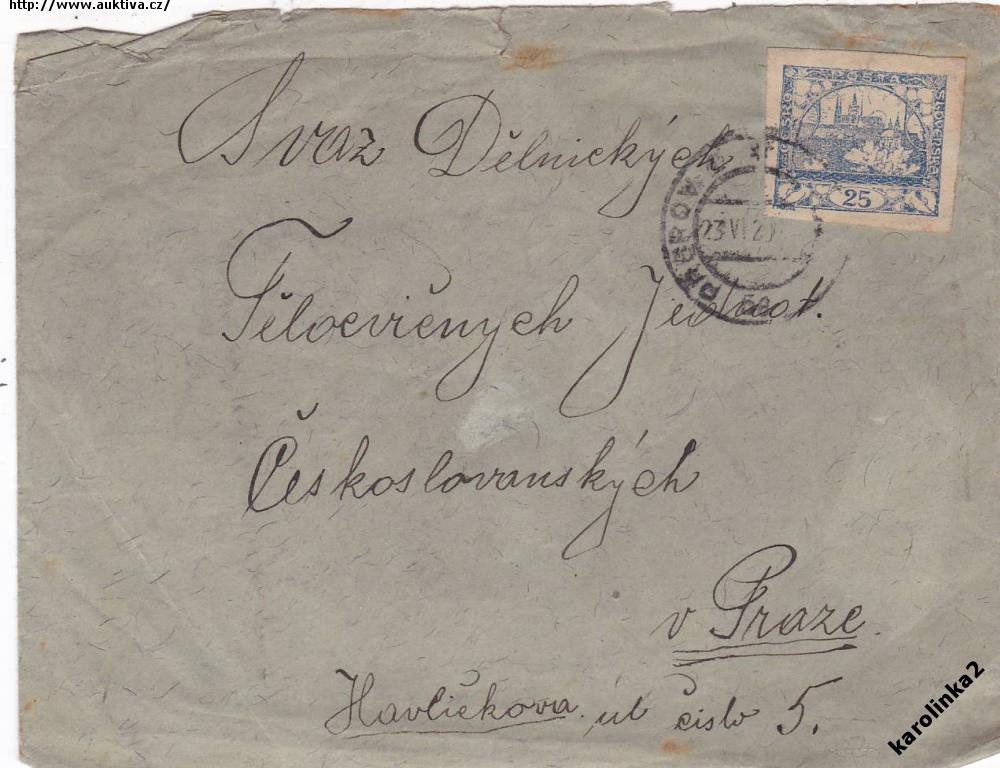 http://www.auktiva.cz/
POSTA
ČESKO SLOVENSKÁ
25
PŘEROV 2
23 VI 20
5e
Svaz Dělnických
Tělocvičených Jednot.
Českoslovanských
v Praze.
Havlíčkova ul číslo 5.
karolinka2